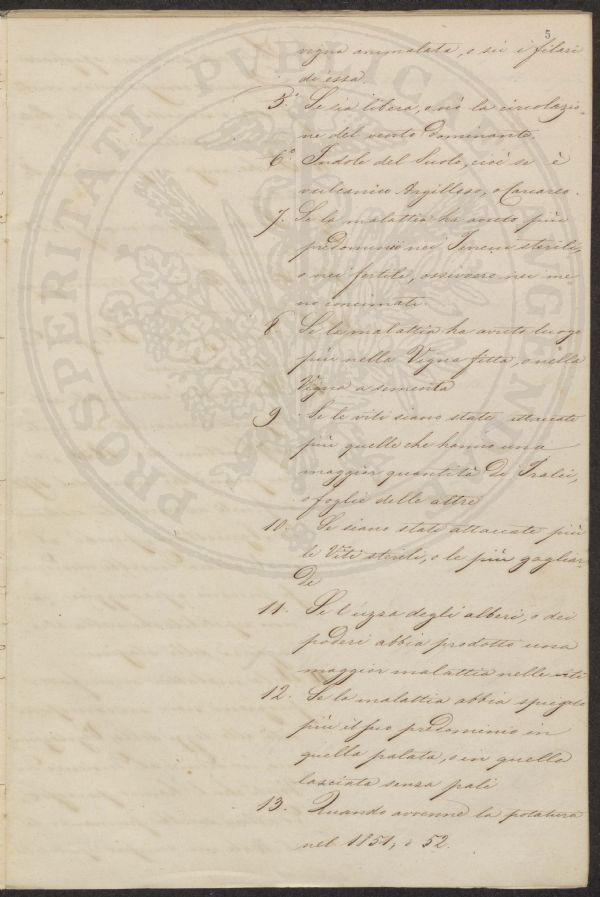 5
vigna ammalata, o sii i filari
di essa.
5.° Se sia libera, o nò la circolazio-
ne del vento dominante.
6.° Indole del Suolo, cioè se è
vulcanico Argilloso, o Carcareo.
7. Se la malattia ha avuto più
predominio nei Terreni sterili,
o nei fertili, ossivvero nei me
no concimati.
8. Se la malattia ha avuto luogo
più nella Vigna fitta, o nella
Vigna a sementa
9. Se le viti siano state attaccate
più quelle che hanno una
maggior quantità di Tralci,
o foglie delle altre
10. Se siano state attaccate più
le Viti sterili, o le più gagliar-
de
11. Se l'uzza degli alberi, o dei
poderi abbia prodotto una
maggior malattia nelle viti
12. Se la malattia abbia spiegato
più il suo predominio in
quella palata, o in quella
lasciata senza pali
13. Quando avvenne la potatura
nel 1851, o 52.
PROSPERITATI PUBLICAE AUGENDAE